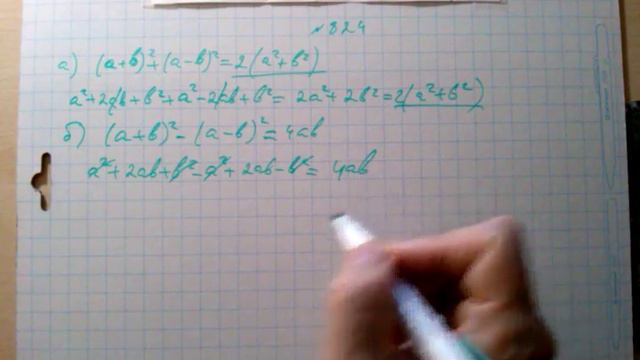 №824
а) (a+b)²+(a-b)²=2(a²+b²)
a²+2ab+b²+a²-2ab+b²=2a²+2b²=2(a²+b²)
б) (a+b)²-(a-b)²=4ab
a²+2ab+b²-a²+2ab-b²=4ab